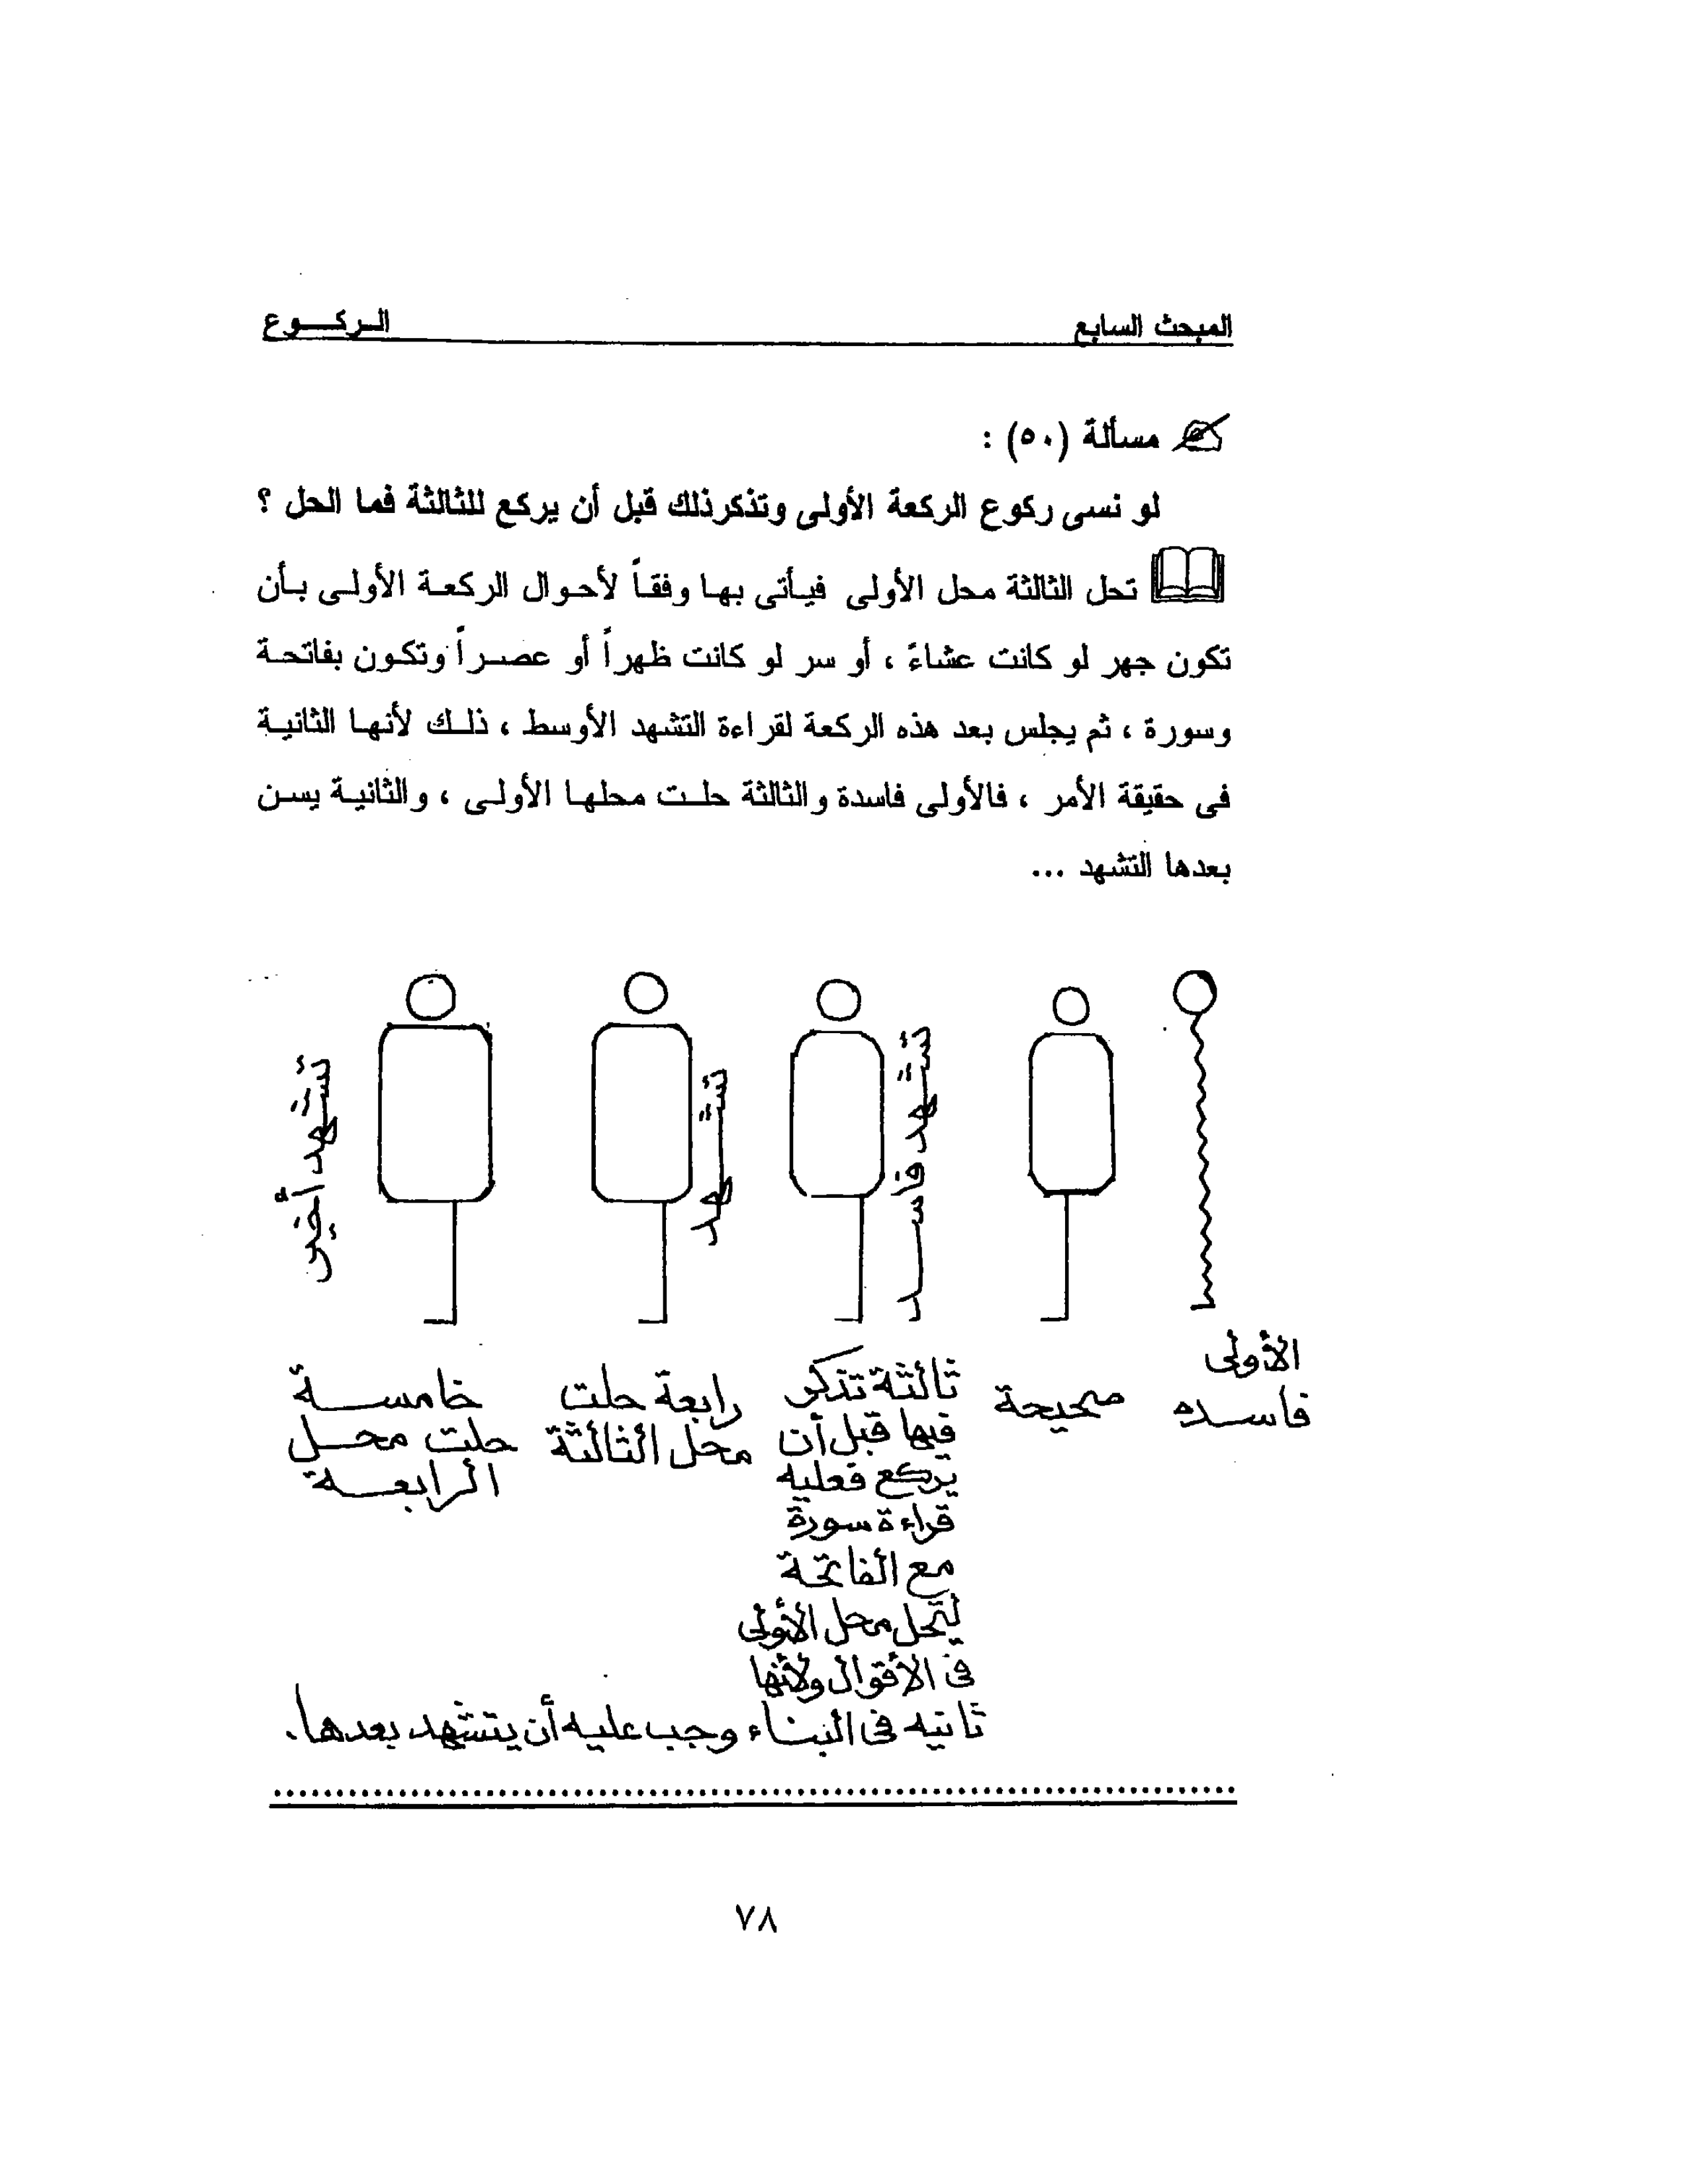 المبحث السابع
الـركـــوع
مسألة (٥٠) :
لو نسى ركوع الركعة الأولى وتذكرذلك قبل أن يركع للثالثة فما الحل ؟
تحل الثالثة محل الأولى فيـأتى بهـا وفقـاً لأحـوال الركعـة الأولـى بـأن
تكون جهر لو كانت عشاءً ، أو سر لو كانت ظهراً أو عصـراً وتكـون بفاتحـة
وسورة ، ثم يجلس بعد هذه الركعة لقراءة التشهد الأوسط ، ذلـك لأنهـا الثانيـة
فى حقيقة الأمر ، فالأولى فاسدة والثالثة حلـت محلهـا الأولـى ، والثانيـة يسـن
بعدها التشهد ...
تشهد فاســد
تشـهد
تشهد أخير
الأولى
فاسـده
صحيحة
ثالثة تذكر
فيها قبل أن
يركع فعليه
قراءة سورة
مع الفاتحة
لتحل محل الأولى
فى الأقوال ولأنها
ثانيه فى البنـاء وجب عليه أن يتشهد بعدها.
رابعة حلت
محل الثالثة
خامســة
حلت محـل
الرابعــة
٧٨